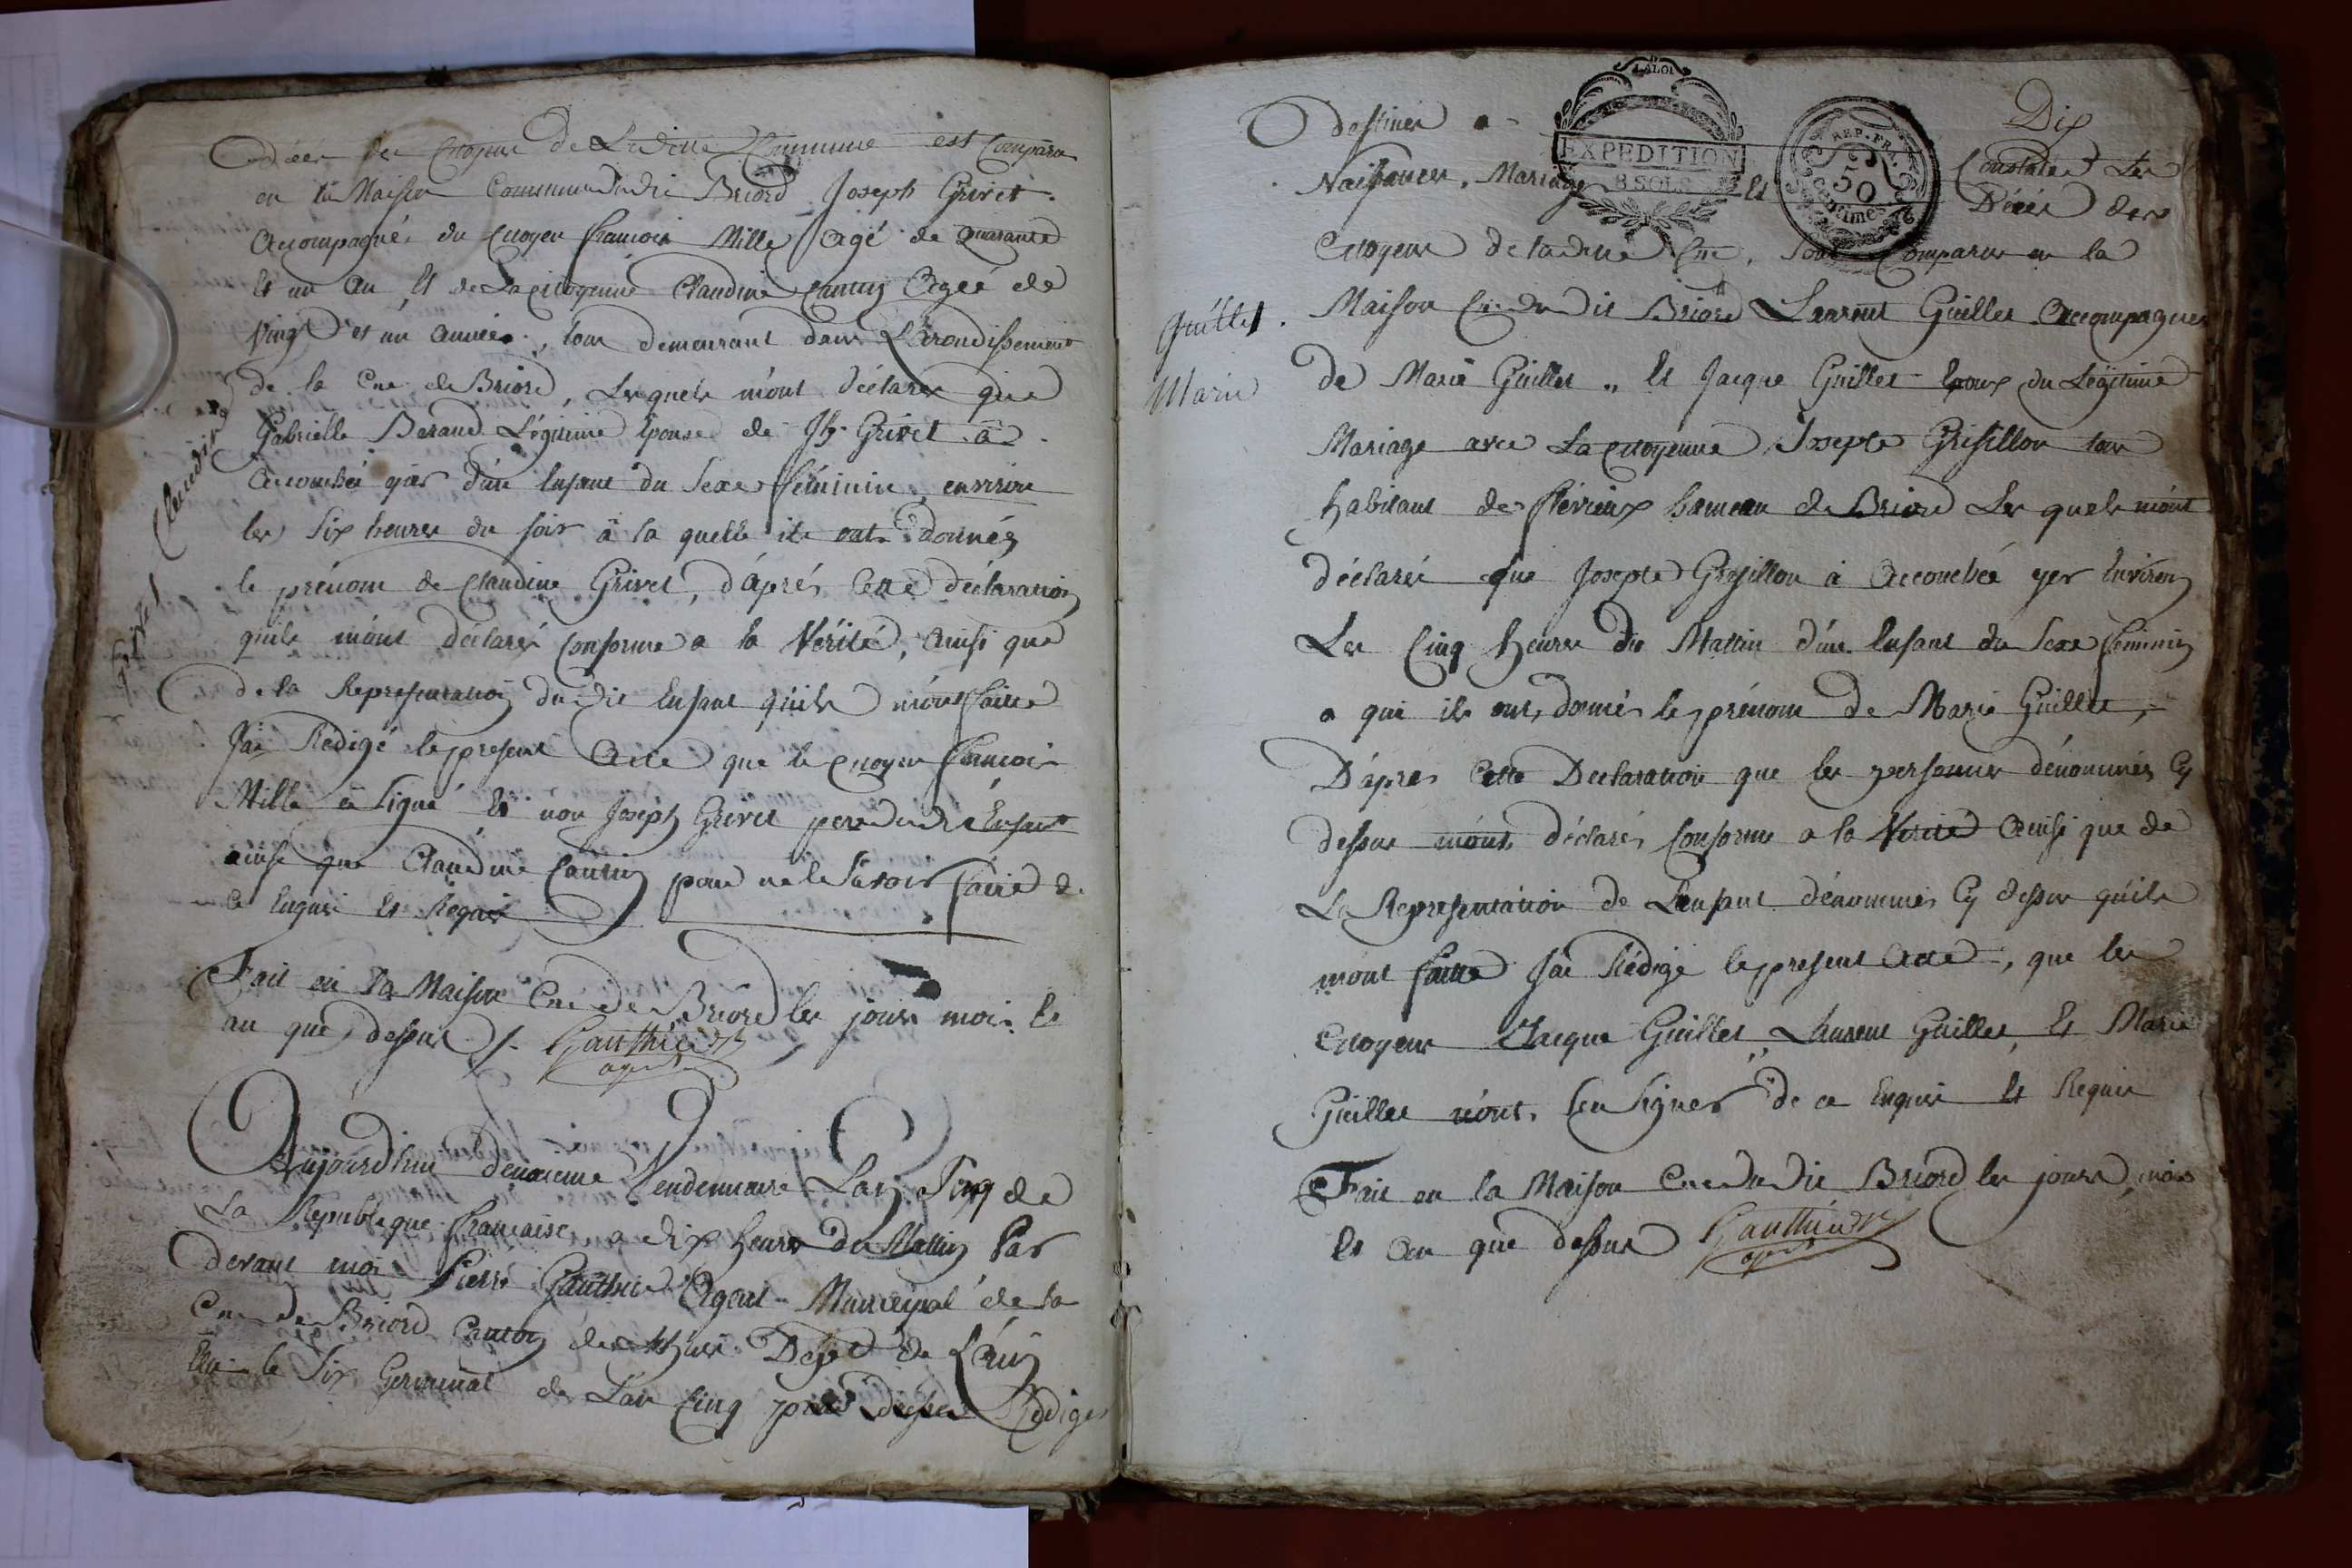 décès des Citoyens de Laditte Commune est Comparu
en la Maison Commune dudit Briord Joseph Grivet
Accompagnés du Citoyen francois Mille Agé de quarante
Et un an, Et de La Citoyenne Claudine Cantin Agée de
Vingt et un années, tous demeurant dans L'arondissement
de la Cne de Briord, Lesquels m'ont déclarés que
Gabrielle Beraud Légitime Epouse de Jh Grivet à
Accouchée yer d'un Enfant du Sexe féminin, environ
les Six heures du soir à la quelle ils ont donnés
le prénom de Claudine Grivet, d'áprés Cette déclaration
quils m'ont déclarés Conforme a la Vérité, Ainsi que
de la Representation dudit Enfant quils m'ont faitte
J'ai Rédigé le present Acte que le Citoyen francois
Mille à Signé Et non Joseph Grivet pere dudit Enfant
ainsi que Claudine Cantin pour ne le Savoir faire de
ce Enquis Et Requis
Fait en la Maison Cne de Briord les jours mois Et
an que dessus /. Gauthier
agent
Grivet Claudine
Aujourd'hui deuxieme Vendemiaire L'an Cinq de
La Republique francaise a dix heures du Mattin Par
devant moi Pierre Gauthier Agent Municipal de la
Cne de Briord Canton de Lhuis Dept de L'ain
Elu le Six Germinal de L'an Cinq pour dresser Rédiger
LA LOI
EXPEDITION
8 SOLS
REP. FR.
50
centimes
Dix
destinés a
Constater Les
Naissances, Mariages Et Décés des
Citoyens de ladite Cne, Sont Comparus en la
Maison Cne dudit Briord Laurent Guillet Accompagnés
Guillet
Marie
de Marie Guillet, Et Jacque Guillet Epoux du Légitime
Mariage avec La Citoyenne Josepte Grisillon tous
habitant de flévieux hameau de Briord Les quels m'ont
déclarés que Josepte Grisillon à Accouchée yer Environ
Les Cinq heures du Mattin d'un Enfant du Sexe feminin
a qui ils ont donnés le prénom de Marie Guillet,
D'áprés Cette Declaration que les personnes dénommés Cy
dessus m'ont déclarés Conforme a la Verité Ainsi que de
La Representation de L'enfant dénommés Cy dessus quils
m'ont faitte J'ai Rédigé le present Acte, que les
Citoyens Jacque Guillet, Laurent Guillet, Et Marie
Guillet n'ont Seu Signer de ce Enquis Et Requis
Fait en la Maison Cne dudit Briord les jours, mois
Et An que dessus Gauthier
agent